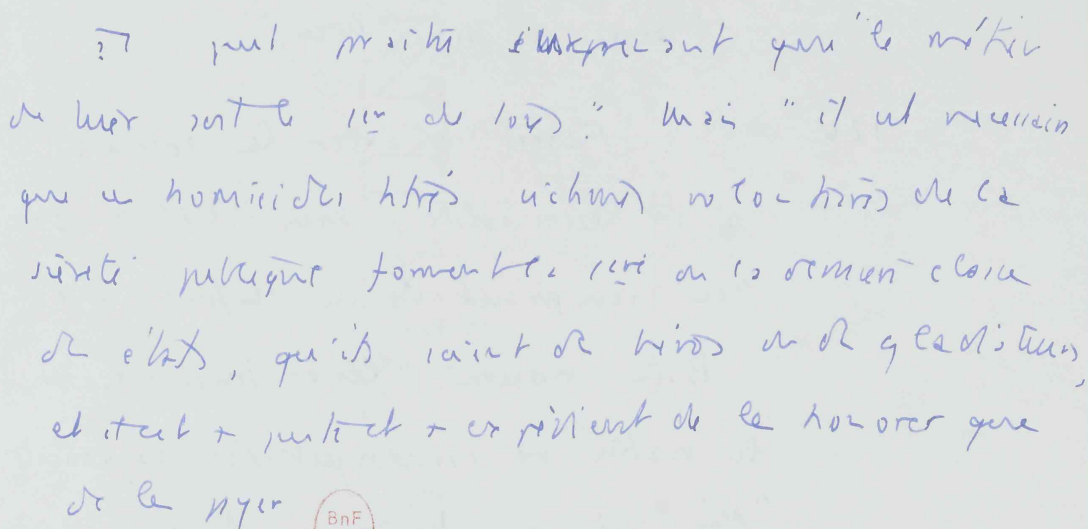 Il peut paraître inexpressant que "le métier
de tuer soit le 1er de tous." Mais "il est nécessaire
que ces homicides titrés victimes volontaires de la
sûreté publique forment la 1ère ou la dernière classe
de l'état, qu'ils soient des héros ou des gladiateurs,
et il est + juste et + expédient de les honorer que
de les payer
BnF